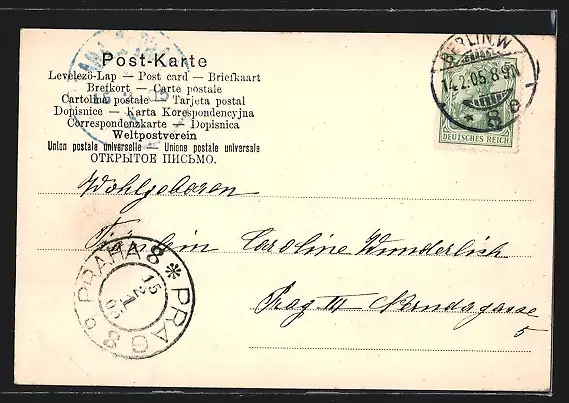 Post-Karte
Levelező-Lap — Post card — Briefkaart
Brefkort — Carte postale
Cartolina postale — Tarjeta postal
Dopisnice — Karta Korespondencyjna
Correspondenzkarte — Dopisnica
Weltpostverein
Union postale universelle — Unione postale universale
ОТКРЫТОЕ ПИСЬМО.
BERLIN.W
14.2.05.8-9N
* 8 e
DEUTSCHES REICH
Wohlgeboren
Fräulein Caroline Wunderlich
Prag III
5
PRAHA 8 * PRAG 8 c
15
2
05